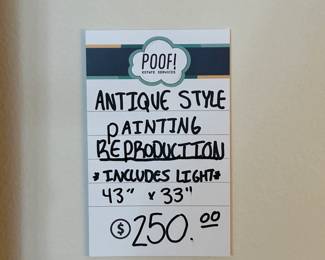 POOF!
ESTATE SERVICES
ANTIQUE STYLE
PAINTING
REPRODUCTION
* INCLUDES LIGHT*
43" x 33"
$ 250.00